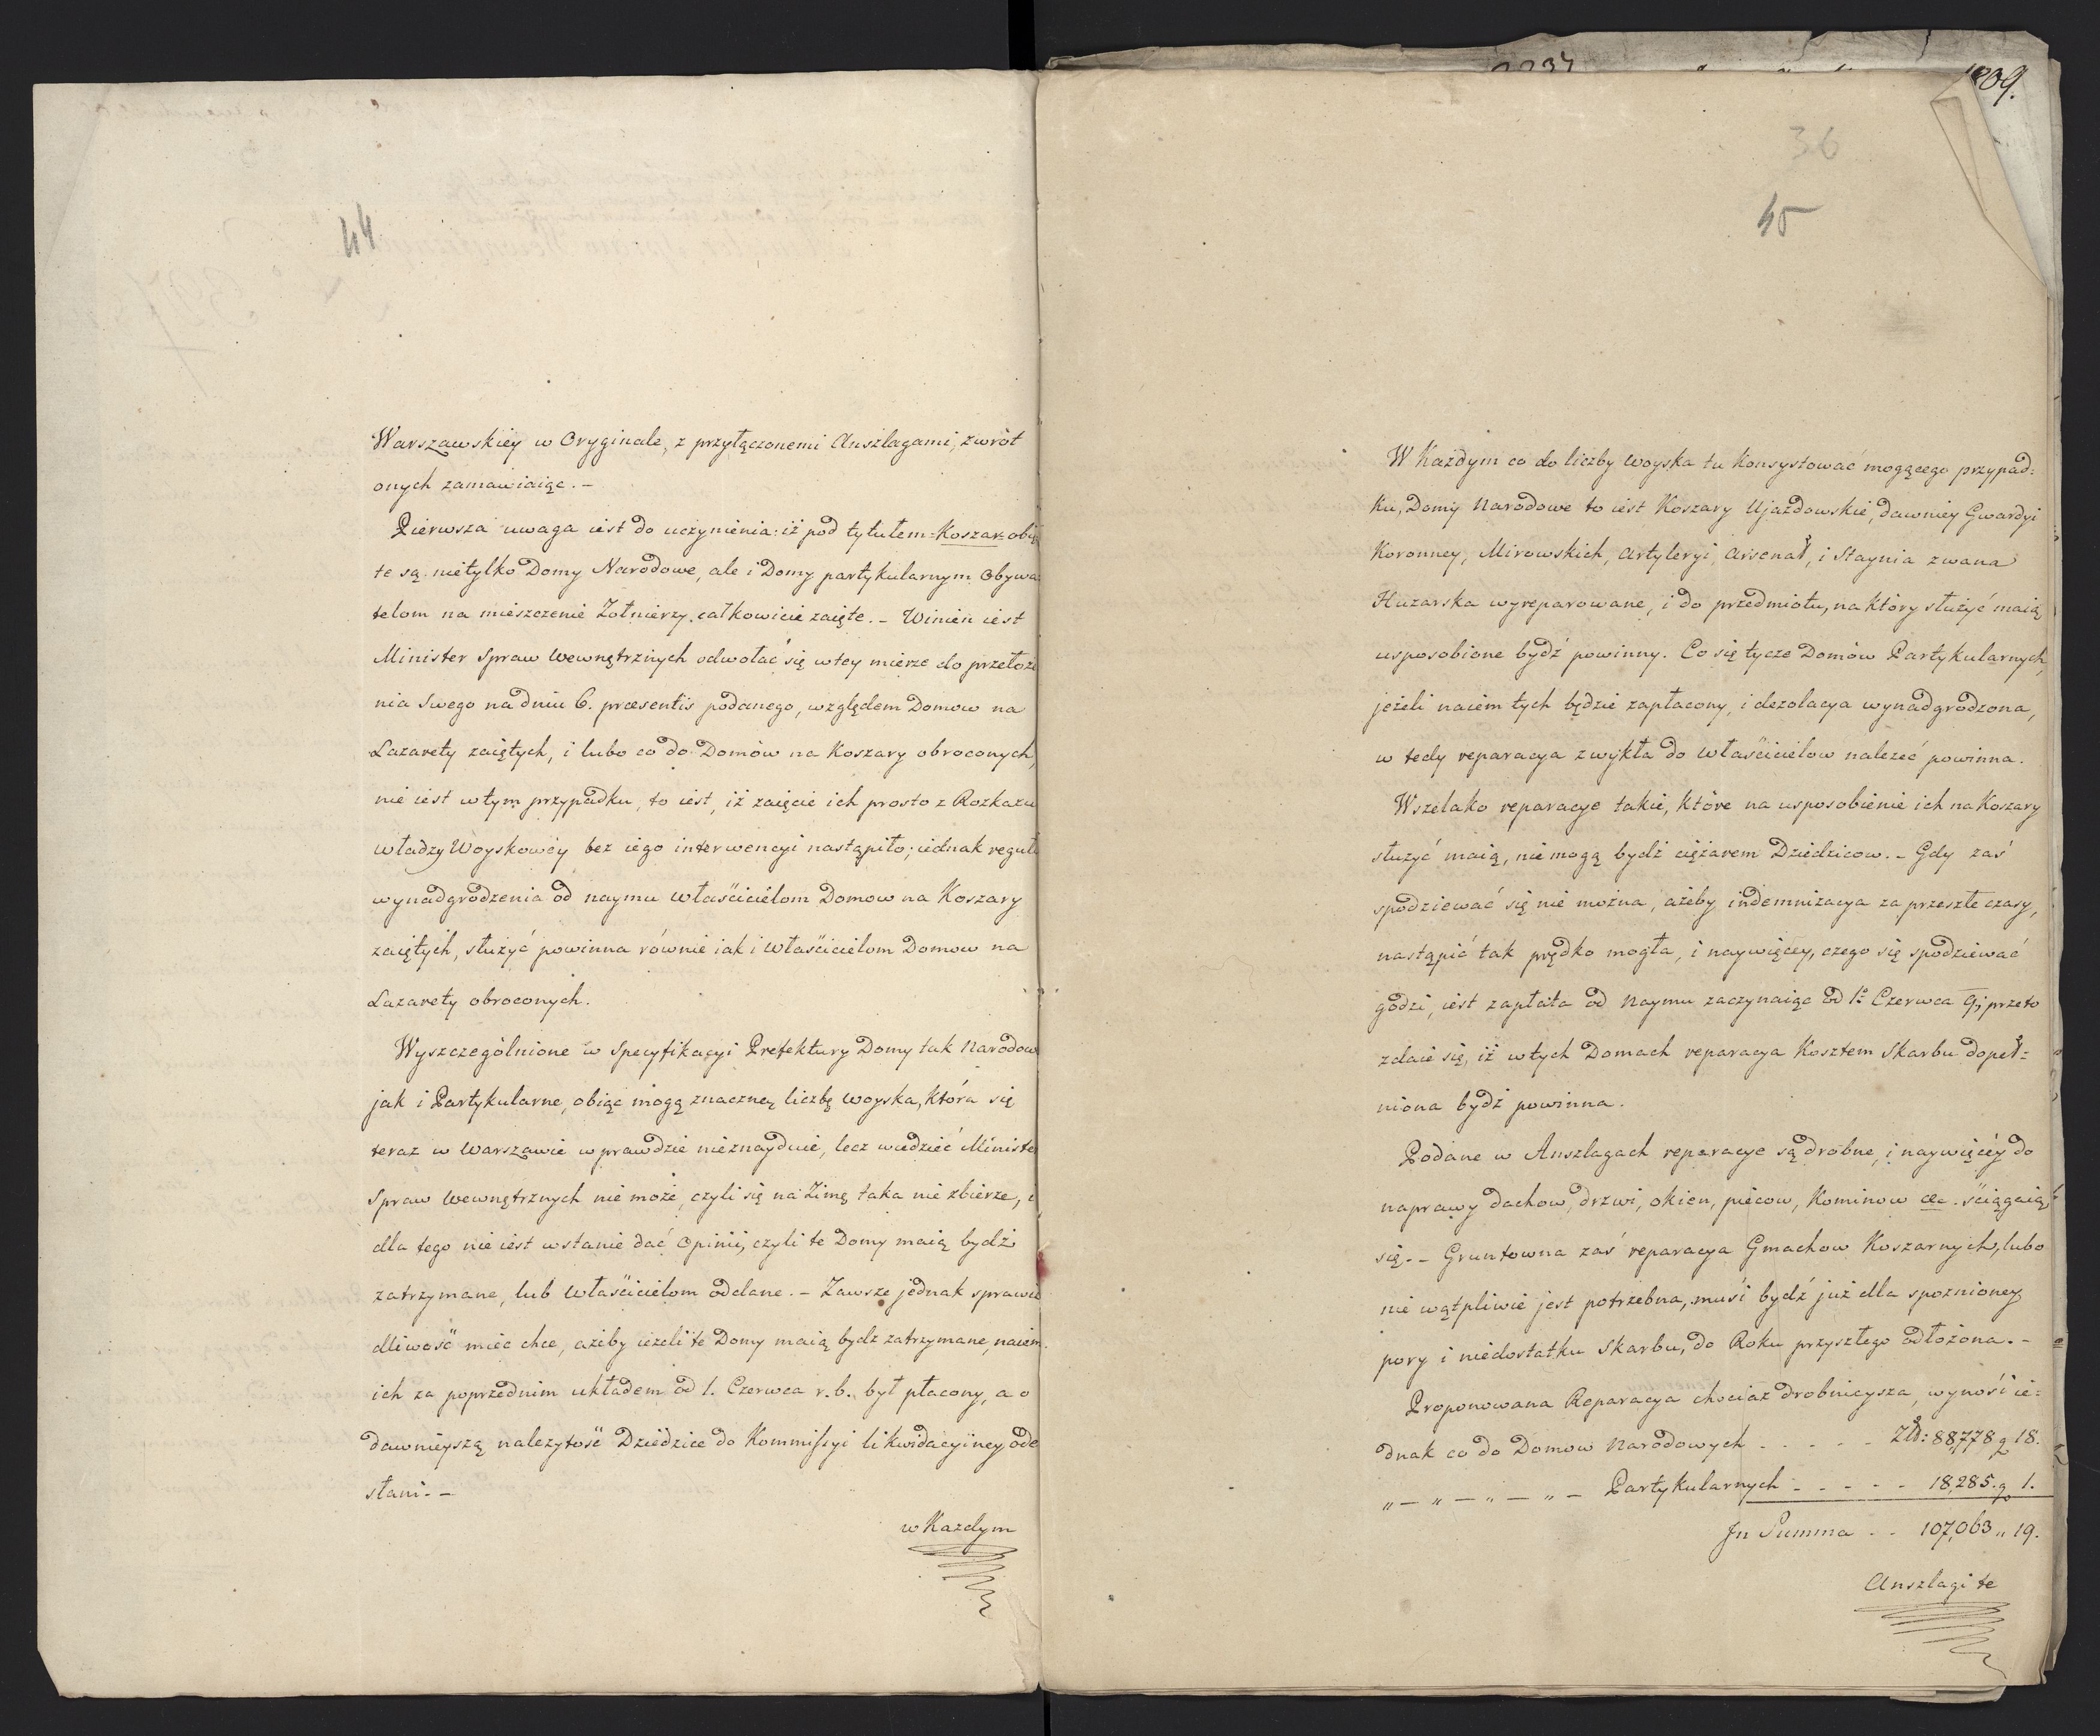 44
Warszawskiéy w Oryginale, z przyłączonemi Anszlagami, zwrót
onych zamawiaiąc. –
Pierwsza uwaga iest do uczynienia: iż pod tytułem = Koszar = obię
te są nietylko Domy Narodowe, ale i Domy partykularnym Obywa
telom na mieszczenie Żołnierzy całkowicie zaięte. – Winien iest
Minister Spraw Wewnętrznych odwołać się w tey mierze do przełoże
nia Swego na dniu 6. praesentis podanego, względem Domow na
Lazarety zaiętych, i lubo co do Domów na Koszary obroconych,
nie iest w tym przypadku, to iest, iż zaięcie ich prosto z Rozkazu
Władzy Woyskowéy bez iego interwencyi nastąpiło; iednak reguła
wynadgrodzenia od naymu Właścicielom Domow na Koszary
zaiętych, służyć powinna równie iak i Właścicielom Domow na
Lazarety obroconych.
Wyszczególnione w Specyfikacyi Prefektury Domy tak Narodow
jak i Partykularne, obiąc mogą znaczney liczbę woyska, która się
teraz w Warszawie wprawdzie nieznayduie, lecz wiedzieć Ministe
Spraw Wewnętrznych nie może, czyli się na Zimę taka nie zbierze, i
dla tego nie iest wstanie dać Opinii, czyli te Domy maią bydź
zatrzymane, lub Właścicielom oddane. – Zawsze jednak sprawie
dliwość mieć chce, ażeby ieżeli te Domy maią bydz zatrzymane, naiem
ich za poprzednim układem od 1. Czerwca r. b. był płacony, a o
dawnieyszą należytość Dziedzice do Kommissyi likwidacyiney ode
słani. –
w Kazdym
1809.
36
45
W Każdym co do liczby woyska tu Konsystować mogącego przypad=
ku, Domy Narodowe to iest Koszary Ujazdowskie, dawniey Gwardyi
Koronney, Mirowskich, Artyleryi Arsenał, i Staynia zwana
Huzarska wyreparowane, i do przedmiotu, na który służyć maią
usposobione bydź powinny. Co się tycze Domów Partykularnych,
jeżeli naiem tych będzie zapłacony, i dezolacya wynadgrodzona,
w tedy reparacya zwykła do Właścicielow należeć powinna.
Wszelako reparacye takie, które na usposobienie ich na Koszary
służyć maią, nie mogą bydź ciężarem Dziedzicow. – Gdy zaś
spodziewać się nie można, ażeby indemnizacya za przeszłe czasy,
nastąpić tak prędko mogła, i naywięcey, czego się spodziewać
godzi, iest zapłata od Naymu zaczynaiąc od 1º Czerwca 9; przeto
zdaie się, iż w tych Domach reparacya Kosztem Skarbu dopeł=
niona bydź powinna.
Podane w Anszlagach reparacye są drobne, i naywięcéy do
naprawy dachow, drzwi, okien, piecow, kominow &c. ściągaią
się. – Gruntowna zaś reparacya Gmachow Koszarnych, lubo
nie wątpliwie jest potrzebna, musi bydź już dla spoznioney
pory i niedostatku Skarbu, do Roku przyszłego odłożona. –
Proponowana Reparacya chociaz drobnieysza, wynosi ie=
dnak co do Domow Narodowych . . . . . Złł: 88,778 g 18.
„ – „ – „ – „ – Partykularnych . . . . . 18,285. g 1.
In Summa . . 107,063 „ 19.
Anszlagi te